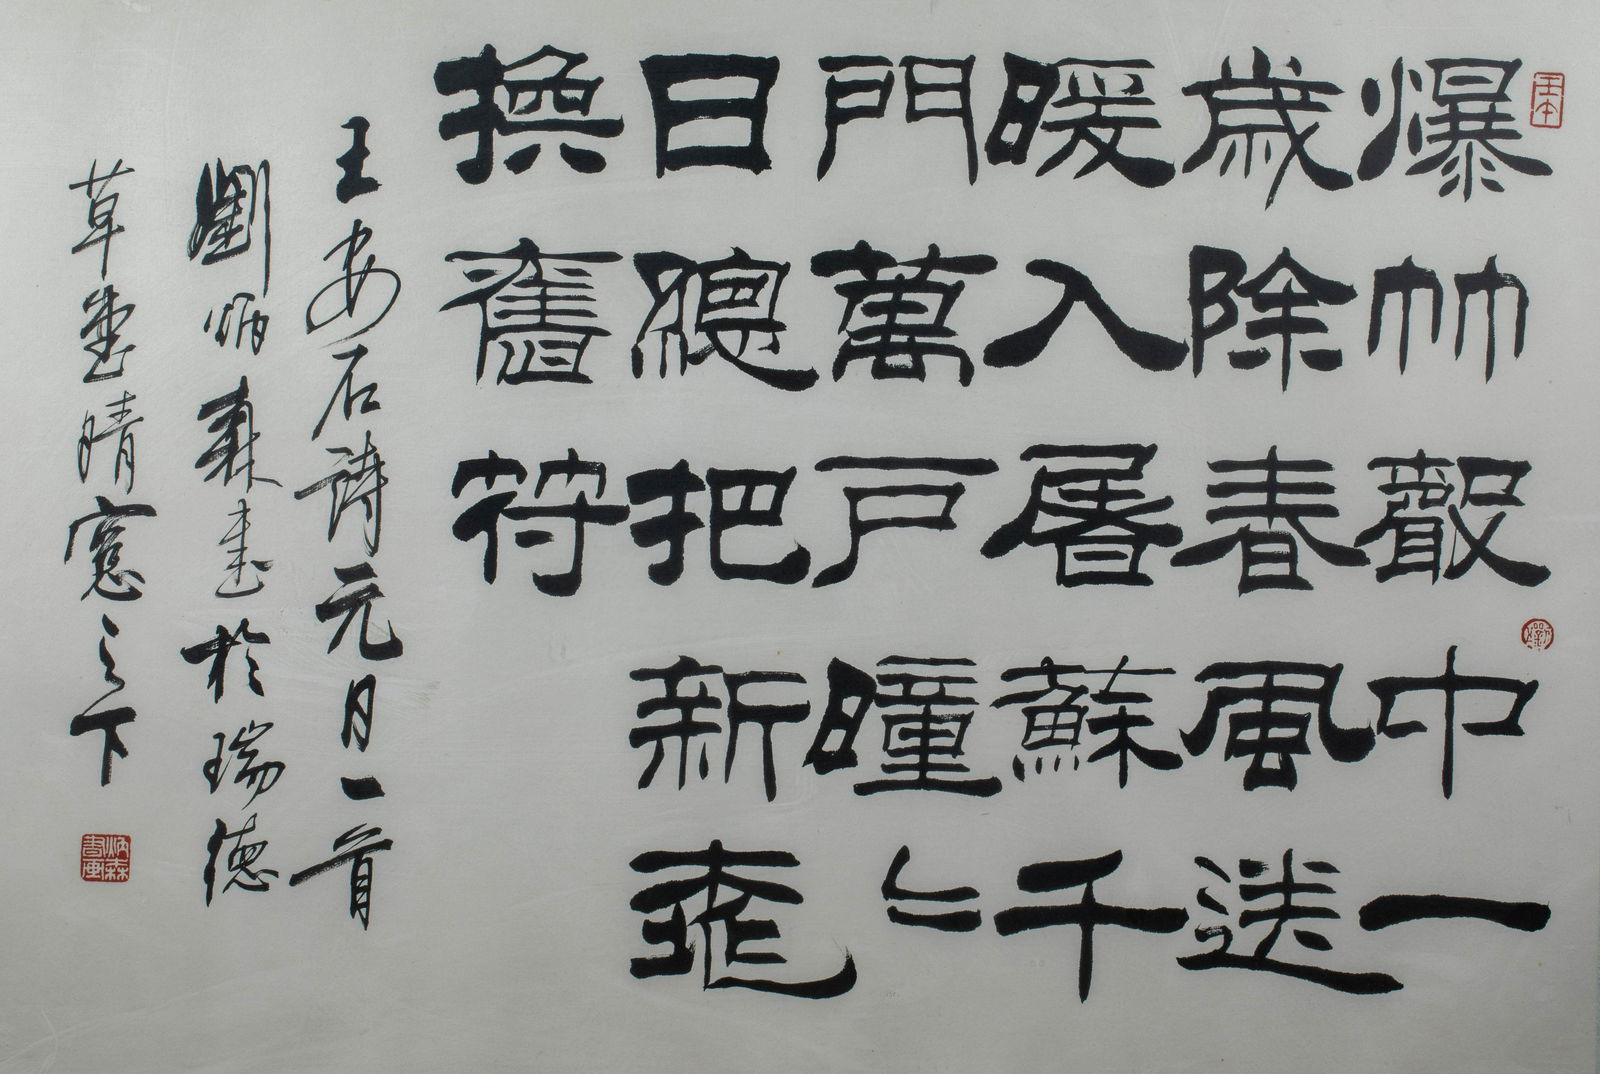 爆竹聲中一
歲除春風送
暖入屠蘇千
門萬戶曈〻
日總把新桃
換舊符
王安石詩元月一首
劉炳森書於瑞德
草堂晴窻之下
劉
炳森書畫